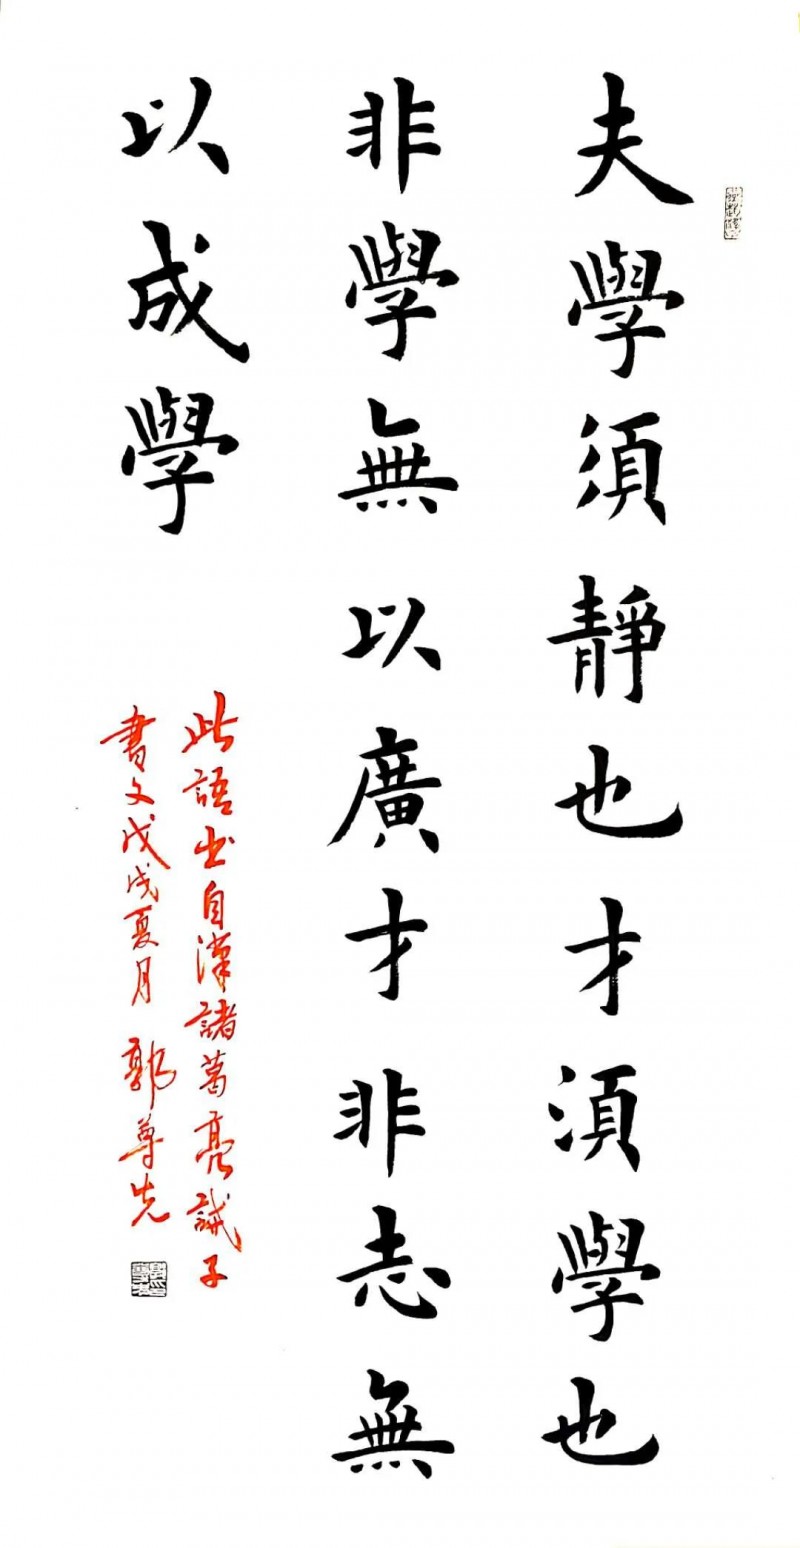 夫學須靜也才須學也
非學無以廣才非志無
以成學
此語出自漢諸葛亮誡子
書文戊戌夏月郭尊先